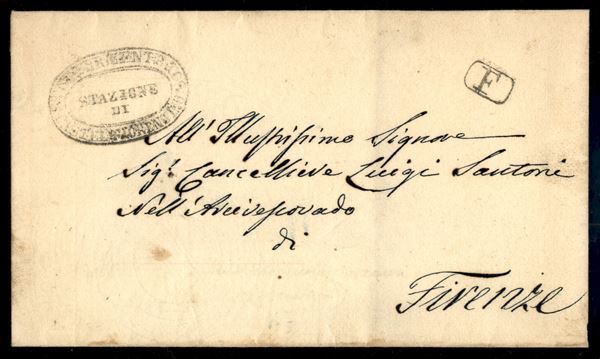 STAZIONE
DI
F
All' Illustrissimo Signore
Sig.r Cancelliere Luigi Santoni
Nell' Arcivescovado
di
Firenze